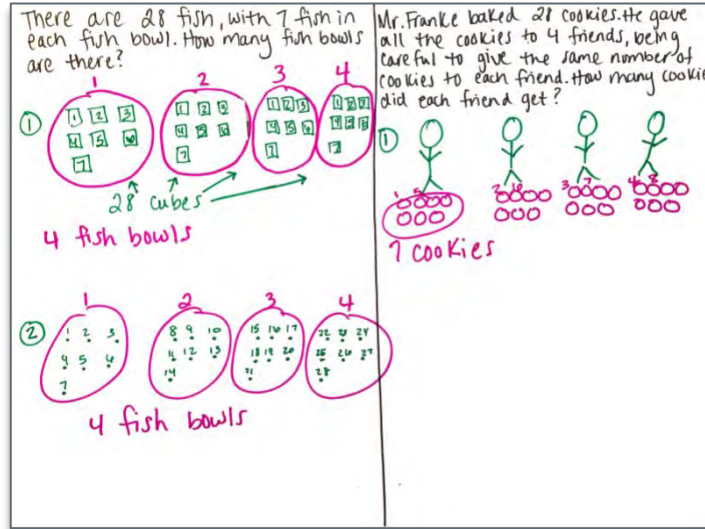 There are 28 fish, with 7 fish in
each fish bowl. How many fish bowls
are there?
1 2 3 4
①
1 2 3 1 2 3 1 2 3 1 2 3
4 5 6 4 5 6 4 5 6 4 5 6
7 7 7 7
28 cubes
4 fish bowls
1 2 3 4
②
1 2 3 8 9 10 15 16 17 22 23 24
4 5 6 11 12 13 18 19 20 25 26 27
7 14 21 28
4 fish bowls
Mr. Franke baked 28 cookies. He gave
all the cookies to 4 friends, being
careful to give the same number of
cookies to each friend. How many cookie
did each friend get?
①
1 5 2 6 3 7 4 8
7 cookies